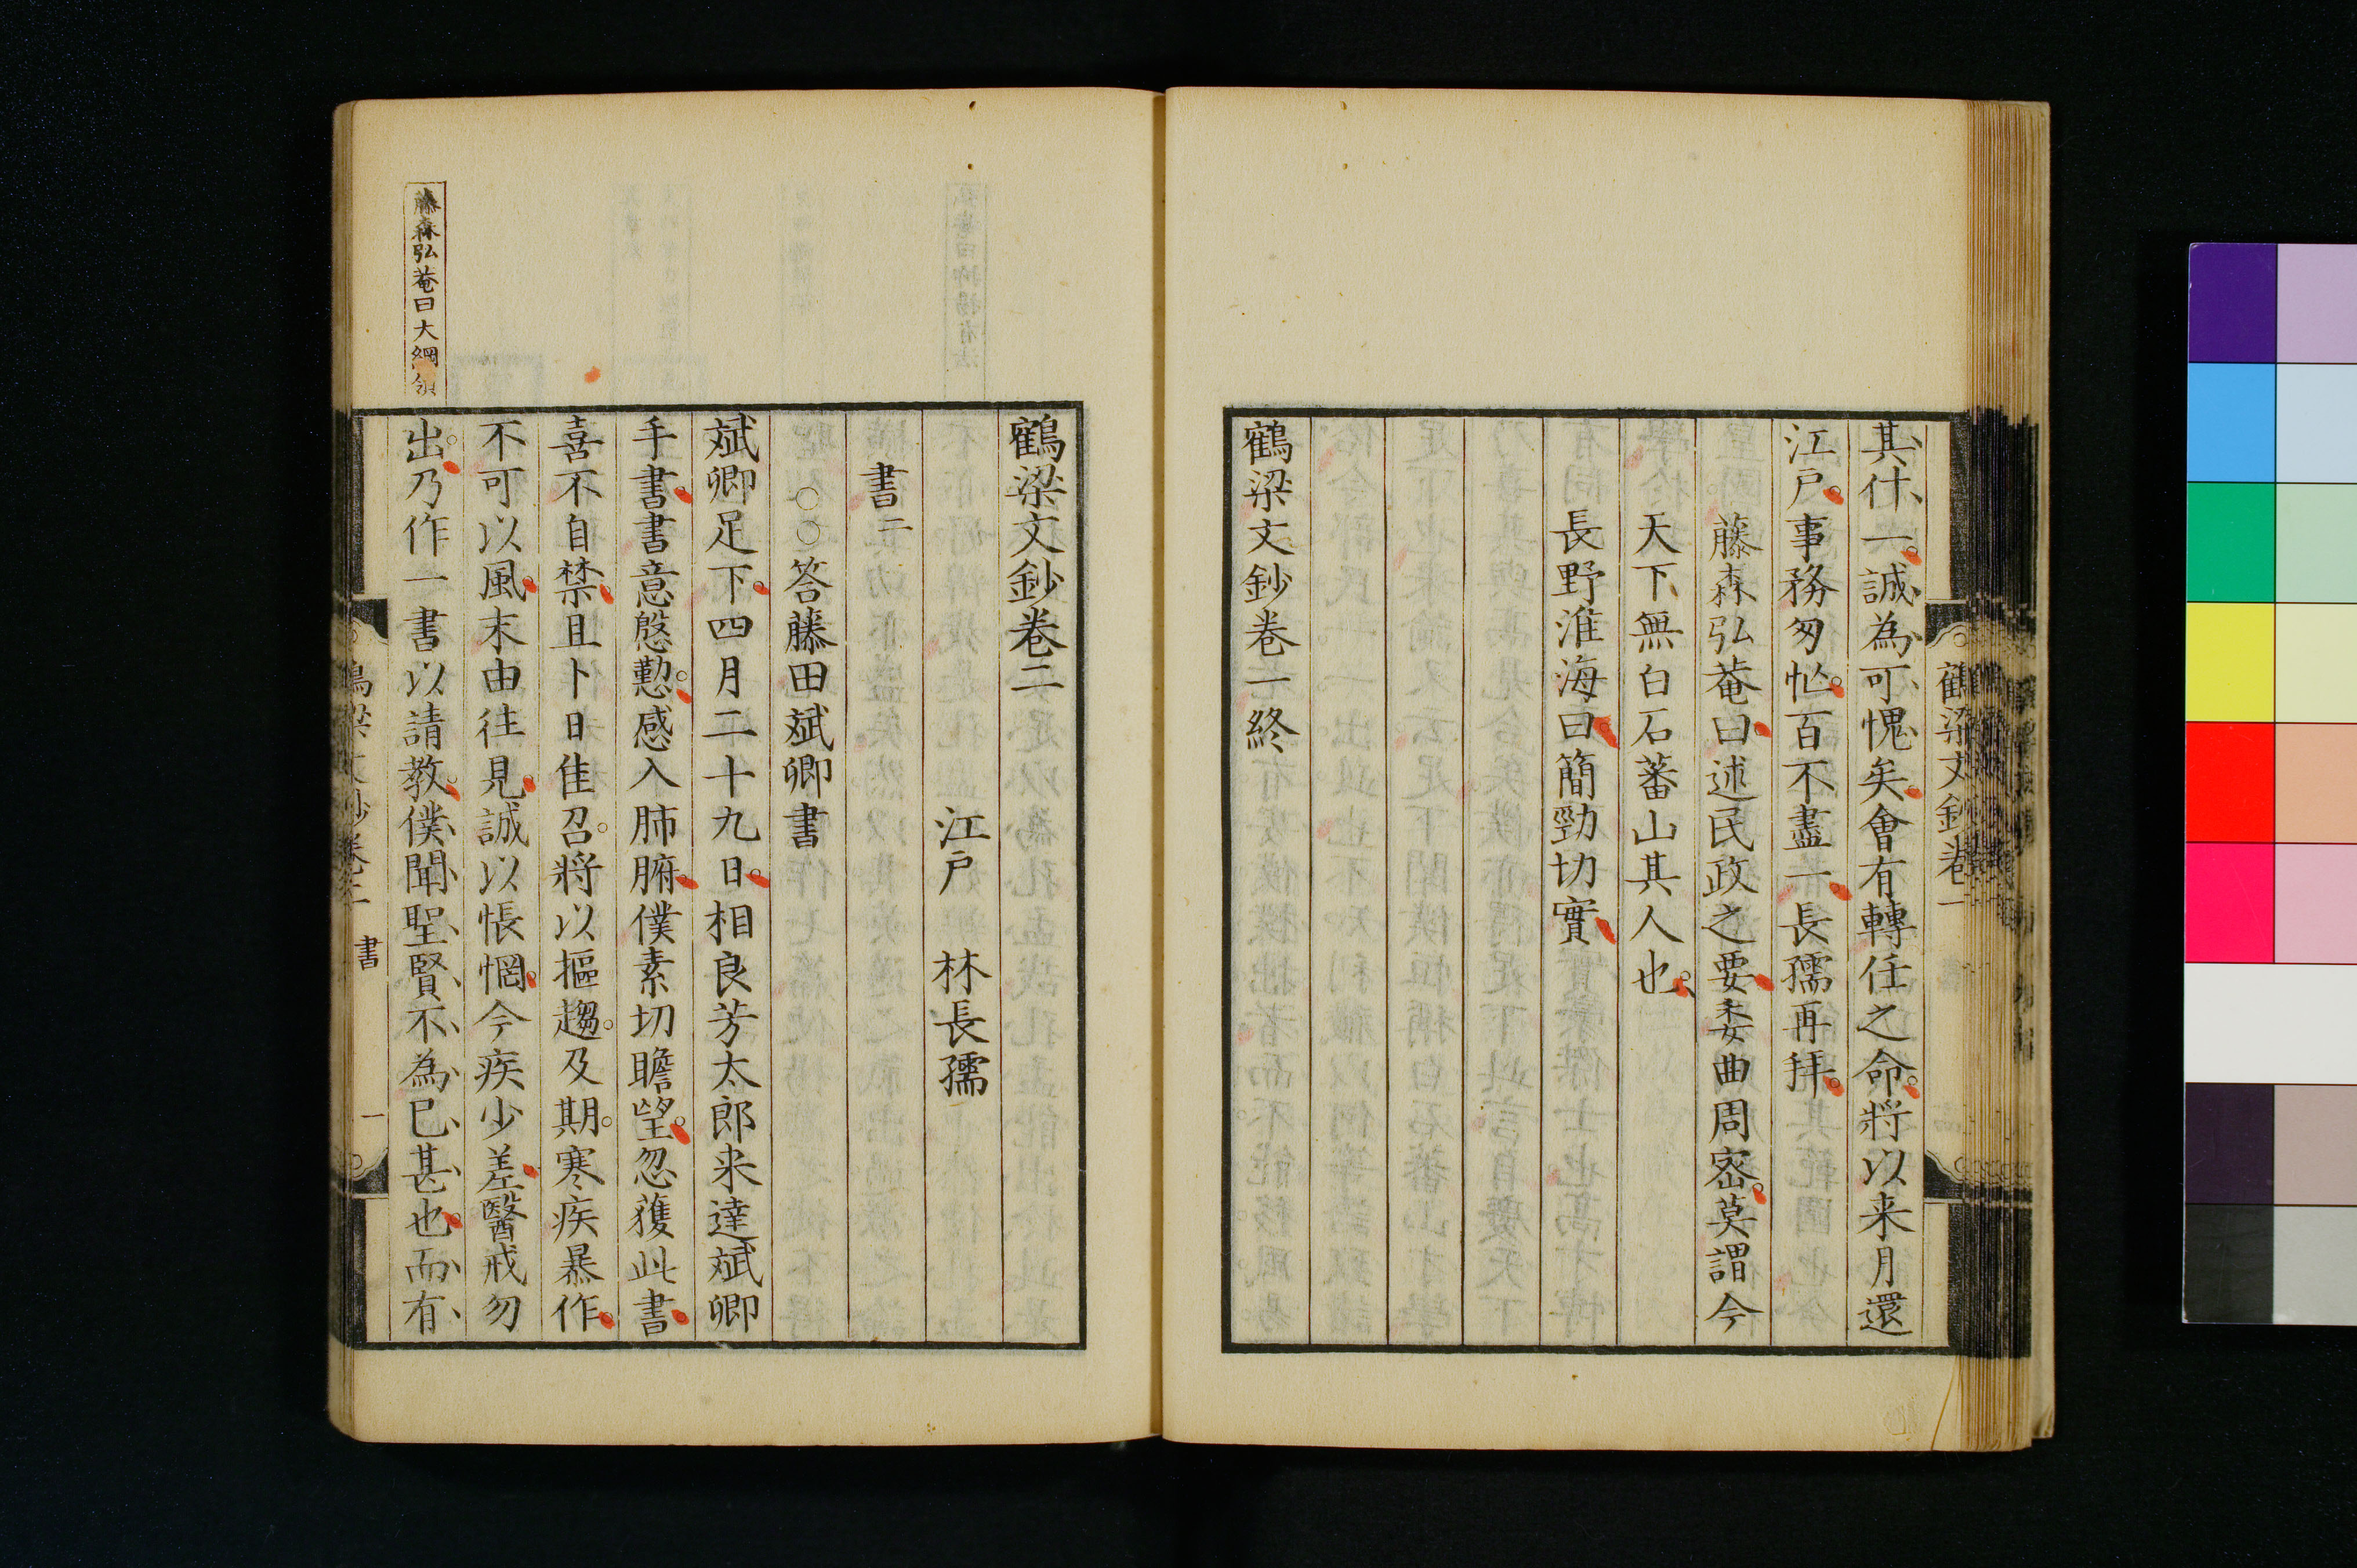 鶴梁文鈔卷一
其什一。誠為可愧矣。會有轉任之命。将以来月還
江戸。事務匆忙。百不盡一。長孺再拜。
藤森弘菴曰。述民政之要。委曲周密。莫謂今
天下無白石蕃山其人也。
長野淮海曰。簡勁切實
鶴梁文鈔卷一終
鶴梁文鈔卷二
江戸 林長孺
書二
○○答藤田斌卿書
斌卿足下。四月二十九日。相良芳太郎来達斌卿
手書。書意慇懃。感入肺腑。僕素切瞻望。忽獲此書。
喜不自禁。且卜日隹召。将以摳趨。及期。寒疾暴作。
不可以風。末由往見。誠以悵惘。今疾少差。醫戒勿
出。乃作一書以請教。僕聞聖賢不為已甚也。而有
藤森弘菴曰大綱領
鶴梁文鈔卷二 書 一